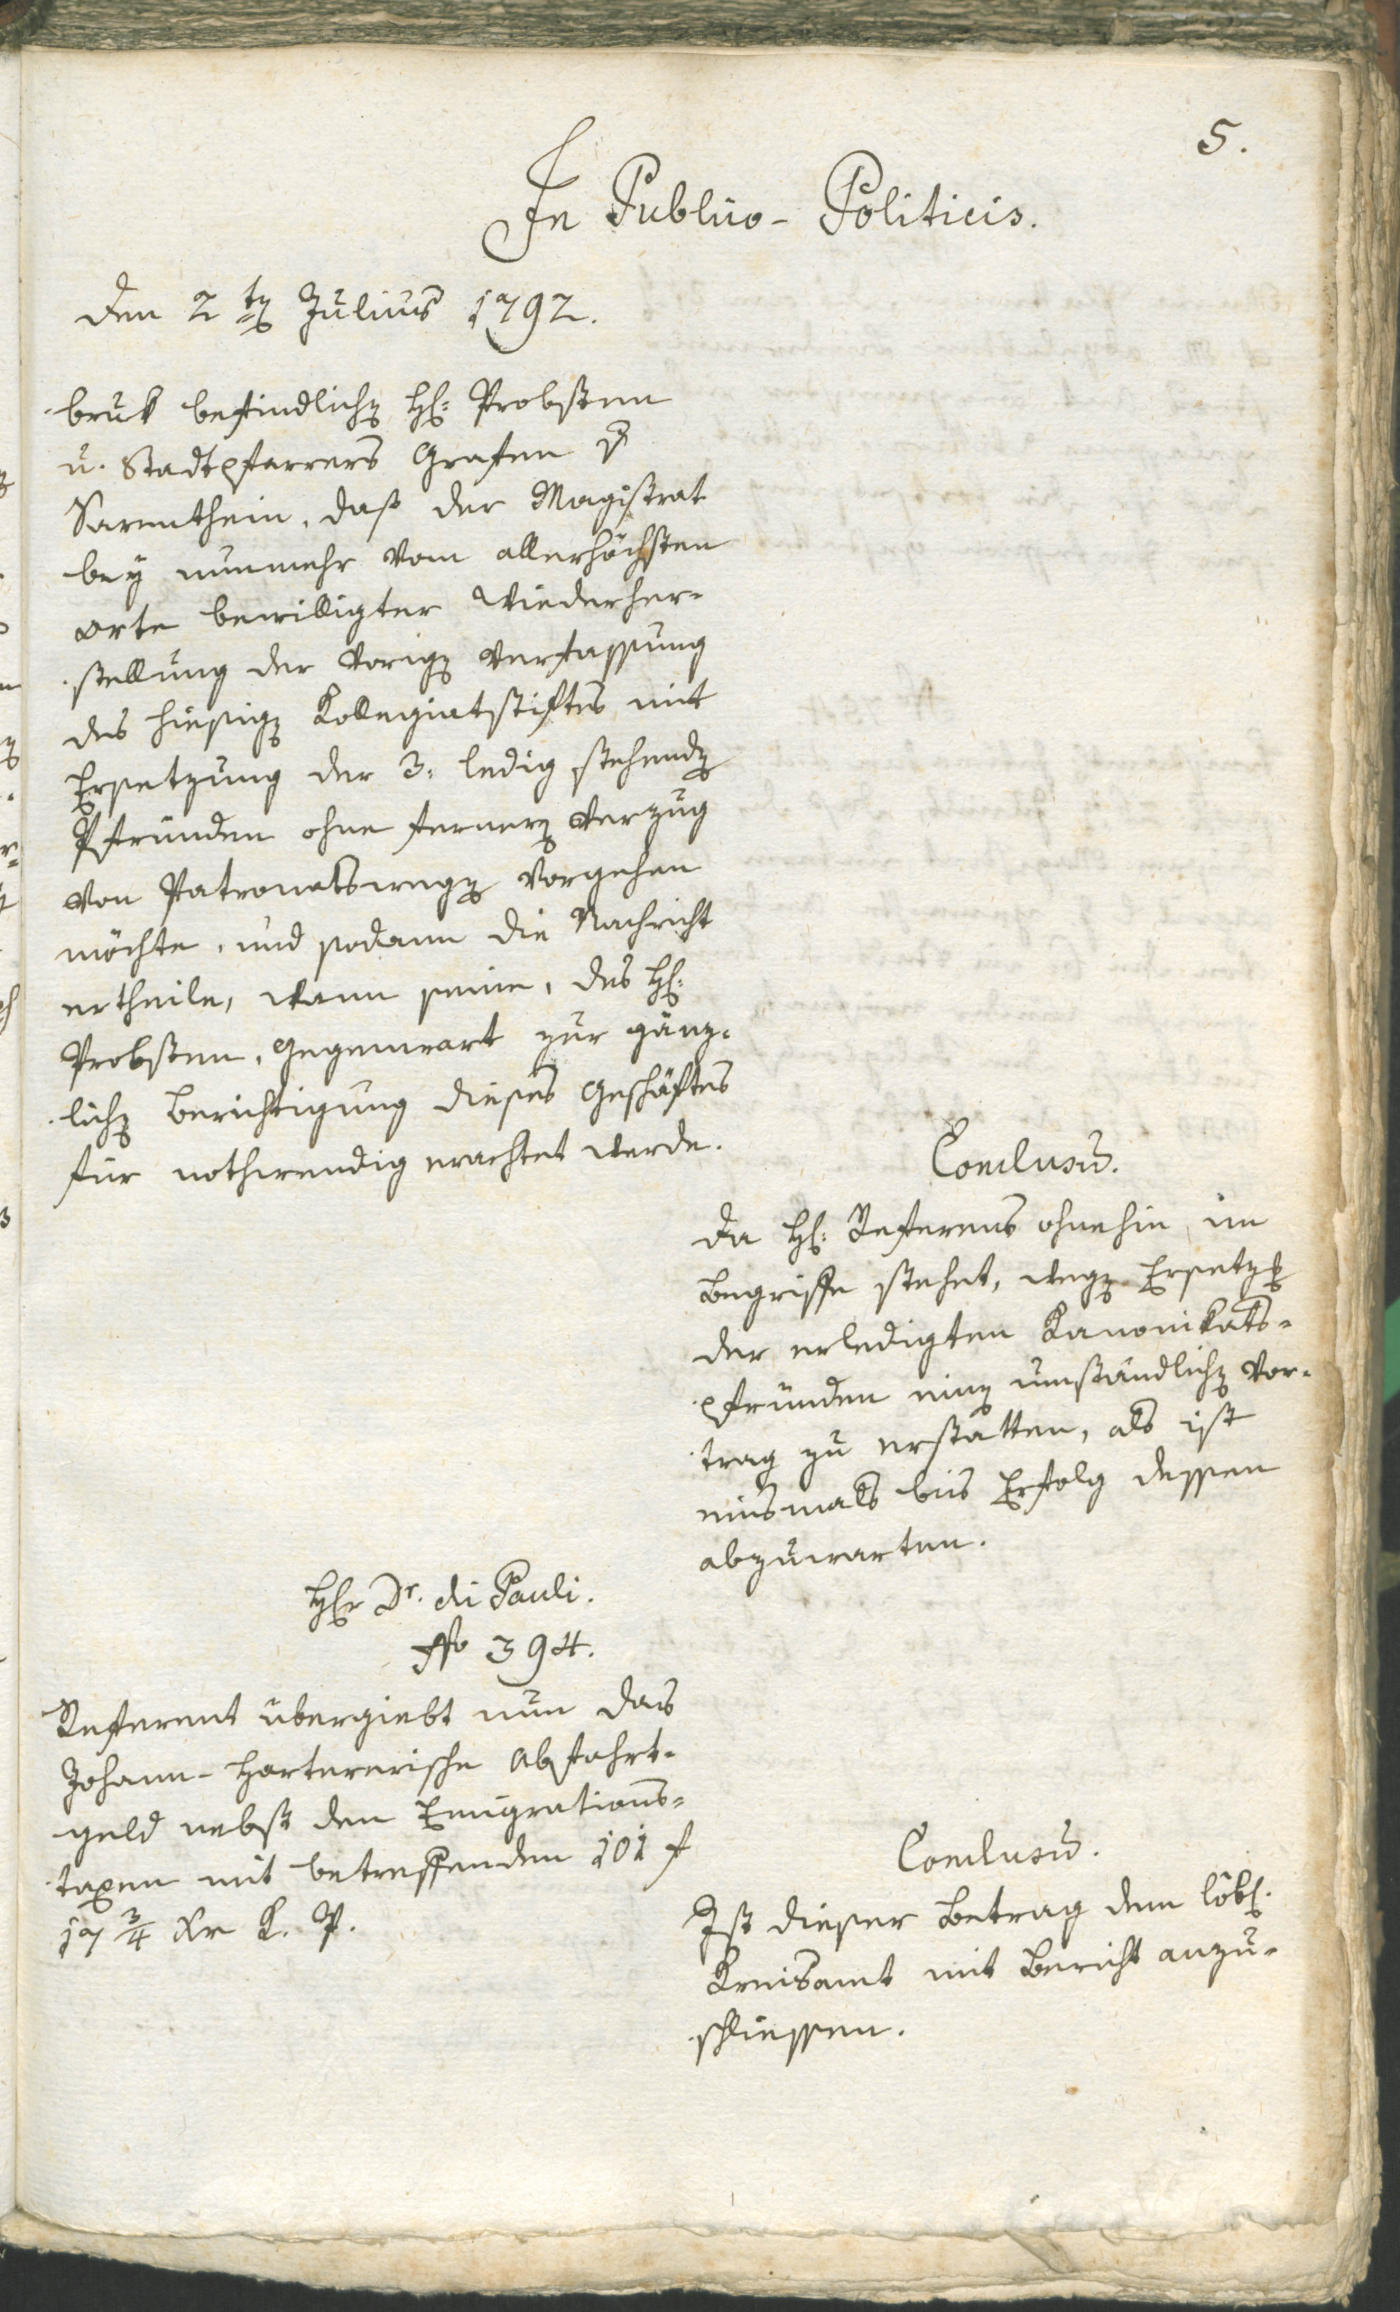 5.
In Publico-Politicis.
den 2ten Julius 1792.
bruk befindlichen H: Probsten
u. Stadtpfarrers Grafen v
Sarenthein, daß der Magistrat
bey nunmehr vom allerhöchsten
Orte bewilligter Wiederher-
stellung der vorigen Verfassung
des hiesigen Kollegiatstiftes mit
Ersetzung der 3: ledig stehenden
Pfründen ohne fernern Verzug
von Patronatswegen vorgehen
möchte, und sodann die Nachricht
ertheile, wann seine, des H:
Probsten, Gegenwart zur gänz-
lichen Berichtigung dieses Geschäftes
für nothwendig erachtet werde.
Conclusum.
Da H: Referens ohnehin im
Begriffe stehet, wegen Ersetzung
der erledigten Kanonikats-
pfründen einen umständlichen Vor-
trag zu erstatten, als ist
einsmals bis Erfolg dessen
abzuwarten.
Hr Dr. di Pauli.
No 394.
Referent übergiebt nun das
Johann-Hartererische Abfahrt-
geld nebst den Emigrations-
taxen mit betreffenden 101 f
17 3/4 Xr K. P.
Conclusum.
Ist dieser Betrag dem löbl.
Kreisamt mit Bericht anzu-
schliessen.